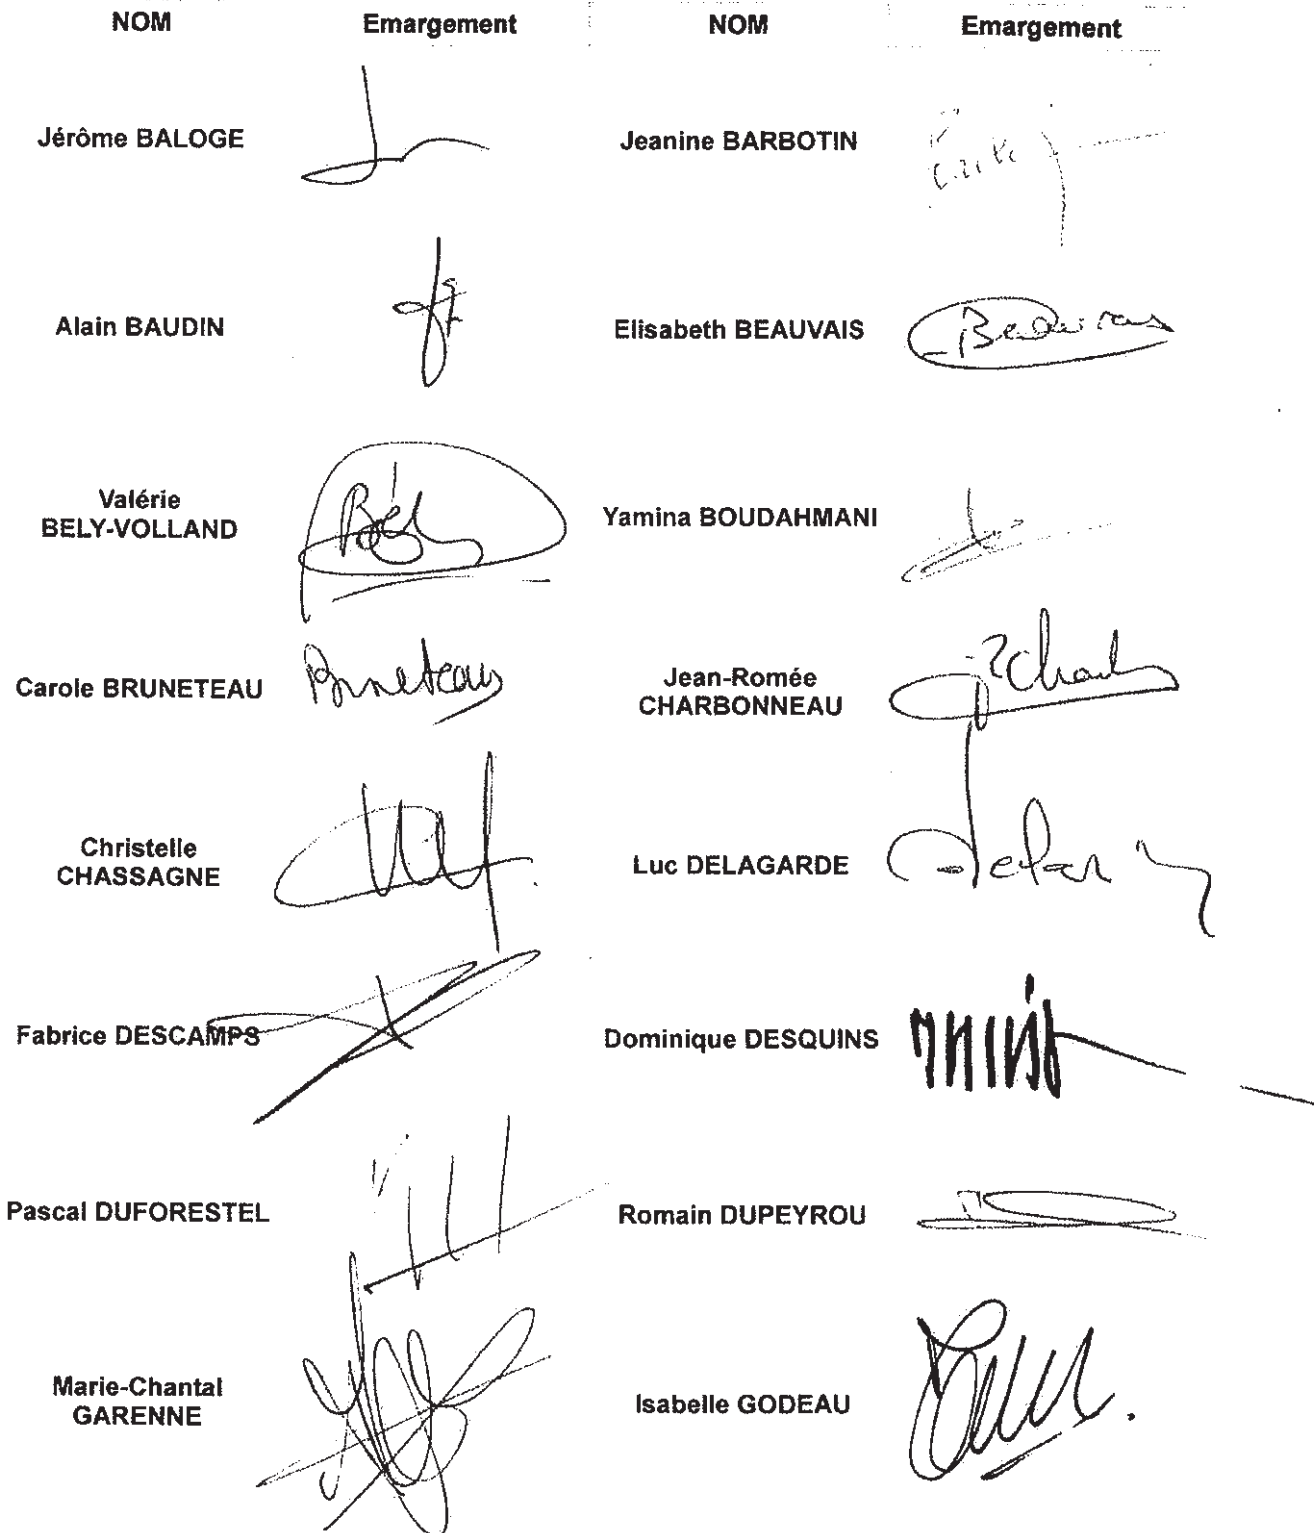 NOM Emargement NOM Emargement
Jérôme BALOGE Jeanine BARBOTIN
Alain BAUDIN Elisabeth BEAUVAIS
Beauvais
Valérie
BELY-VOLLAND
Yamina BOUDAHMANI
Carole BRUNETEAU
Bruneteau
Jean-Romée
CHARBONNEAU
Christelle
CHASSAGNE
Luc DELAGARDE
Fabrice DESCAMPS Dominique DESQUINS
Pascal DUFORESTEL Romain DUPEYROU
Marie-Chantal
GARENNE
Isabelle GODEAU